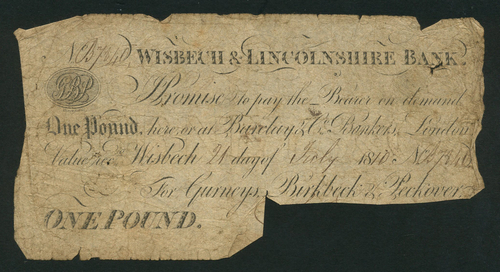 WISBECH & LINCOLNSHIRE BANK.
GBP
I Promise to pay the Bearer on demand
One Pound, here, or at Barclay & Co. Bankers, London
Value recd. Wisbech 21 day of July 1810.
For Gurneys, Birkbeck & Peckover
ONE POUND.